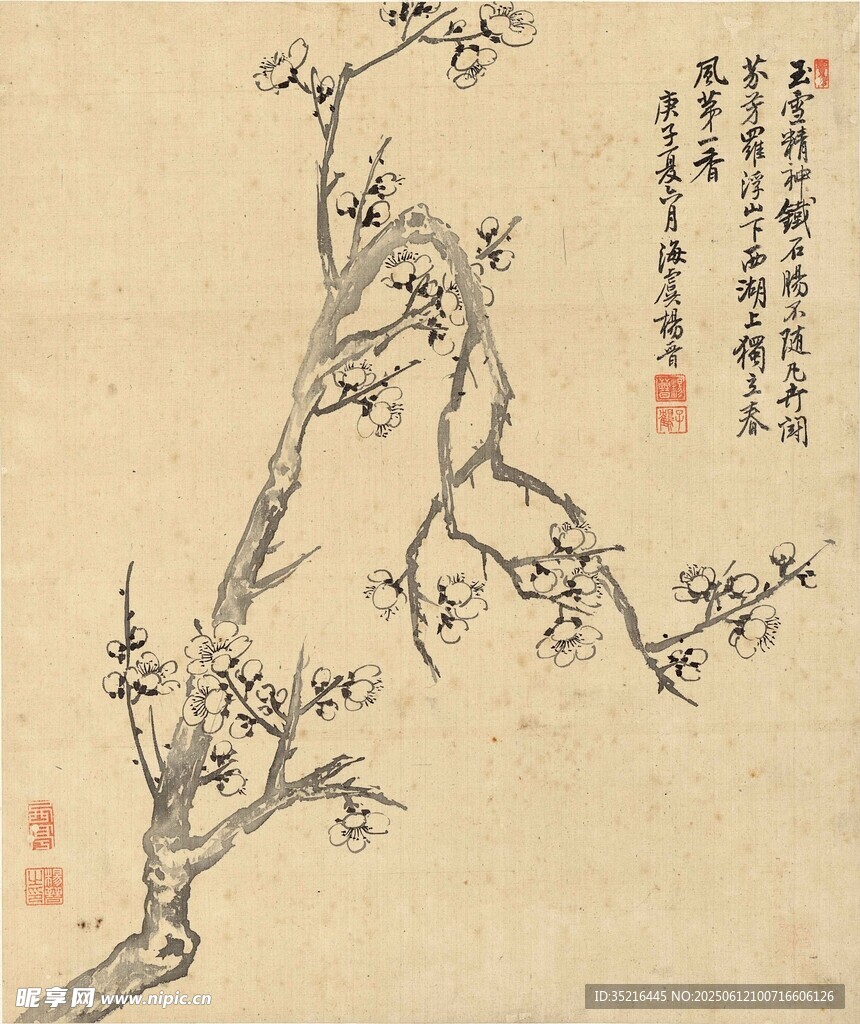 玉雪精神鐵石腸不随凡卉閗
芬芳羅浮山下西湖上獨立春
風第一香
庚子夏六月 海虞楊晋
楊晋
子鶴
西亭
楊晋之印
昵享网 www.nipic.cn
ID:35216445 NO:20250612100716606126